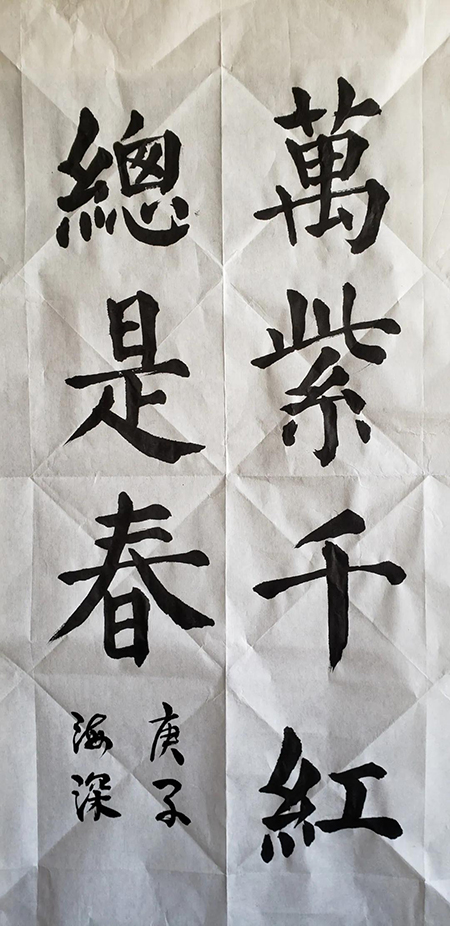 萬紫千紅
總是春
庚子
海深